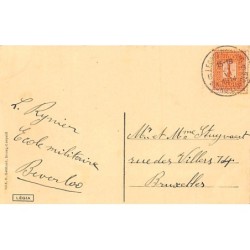 L. Rynier
Ecole militaire
Beverloo
Mr et Mme Stuyvaert
rue des Villers 74
Bruxelles
LÉGIA